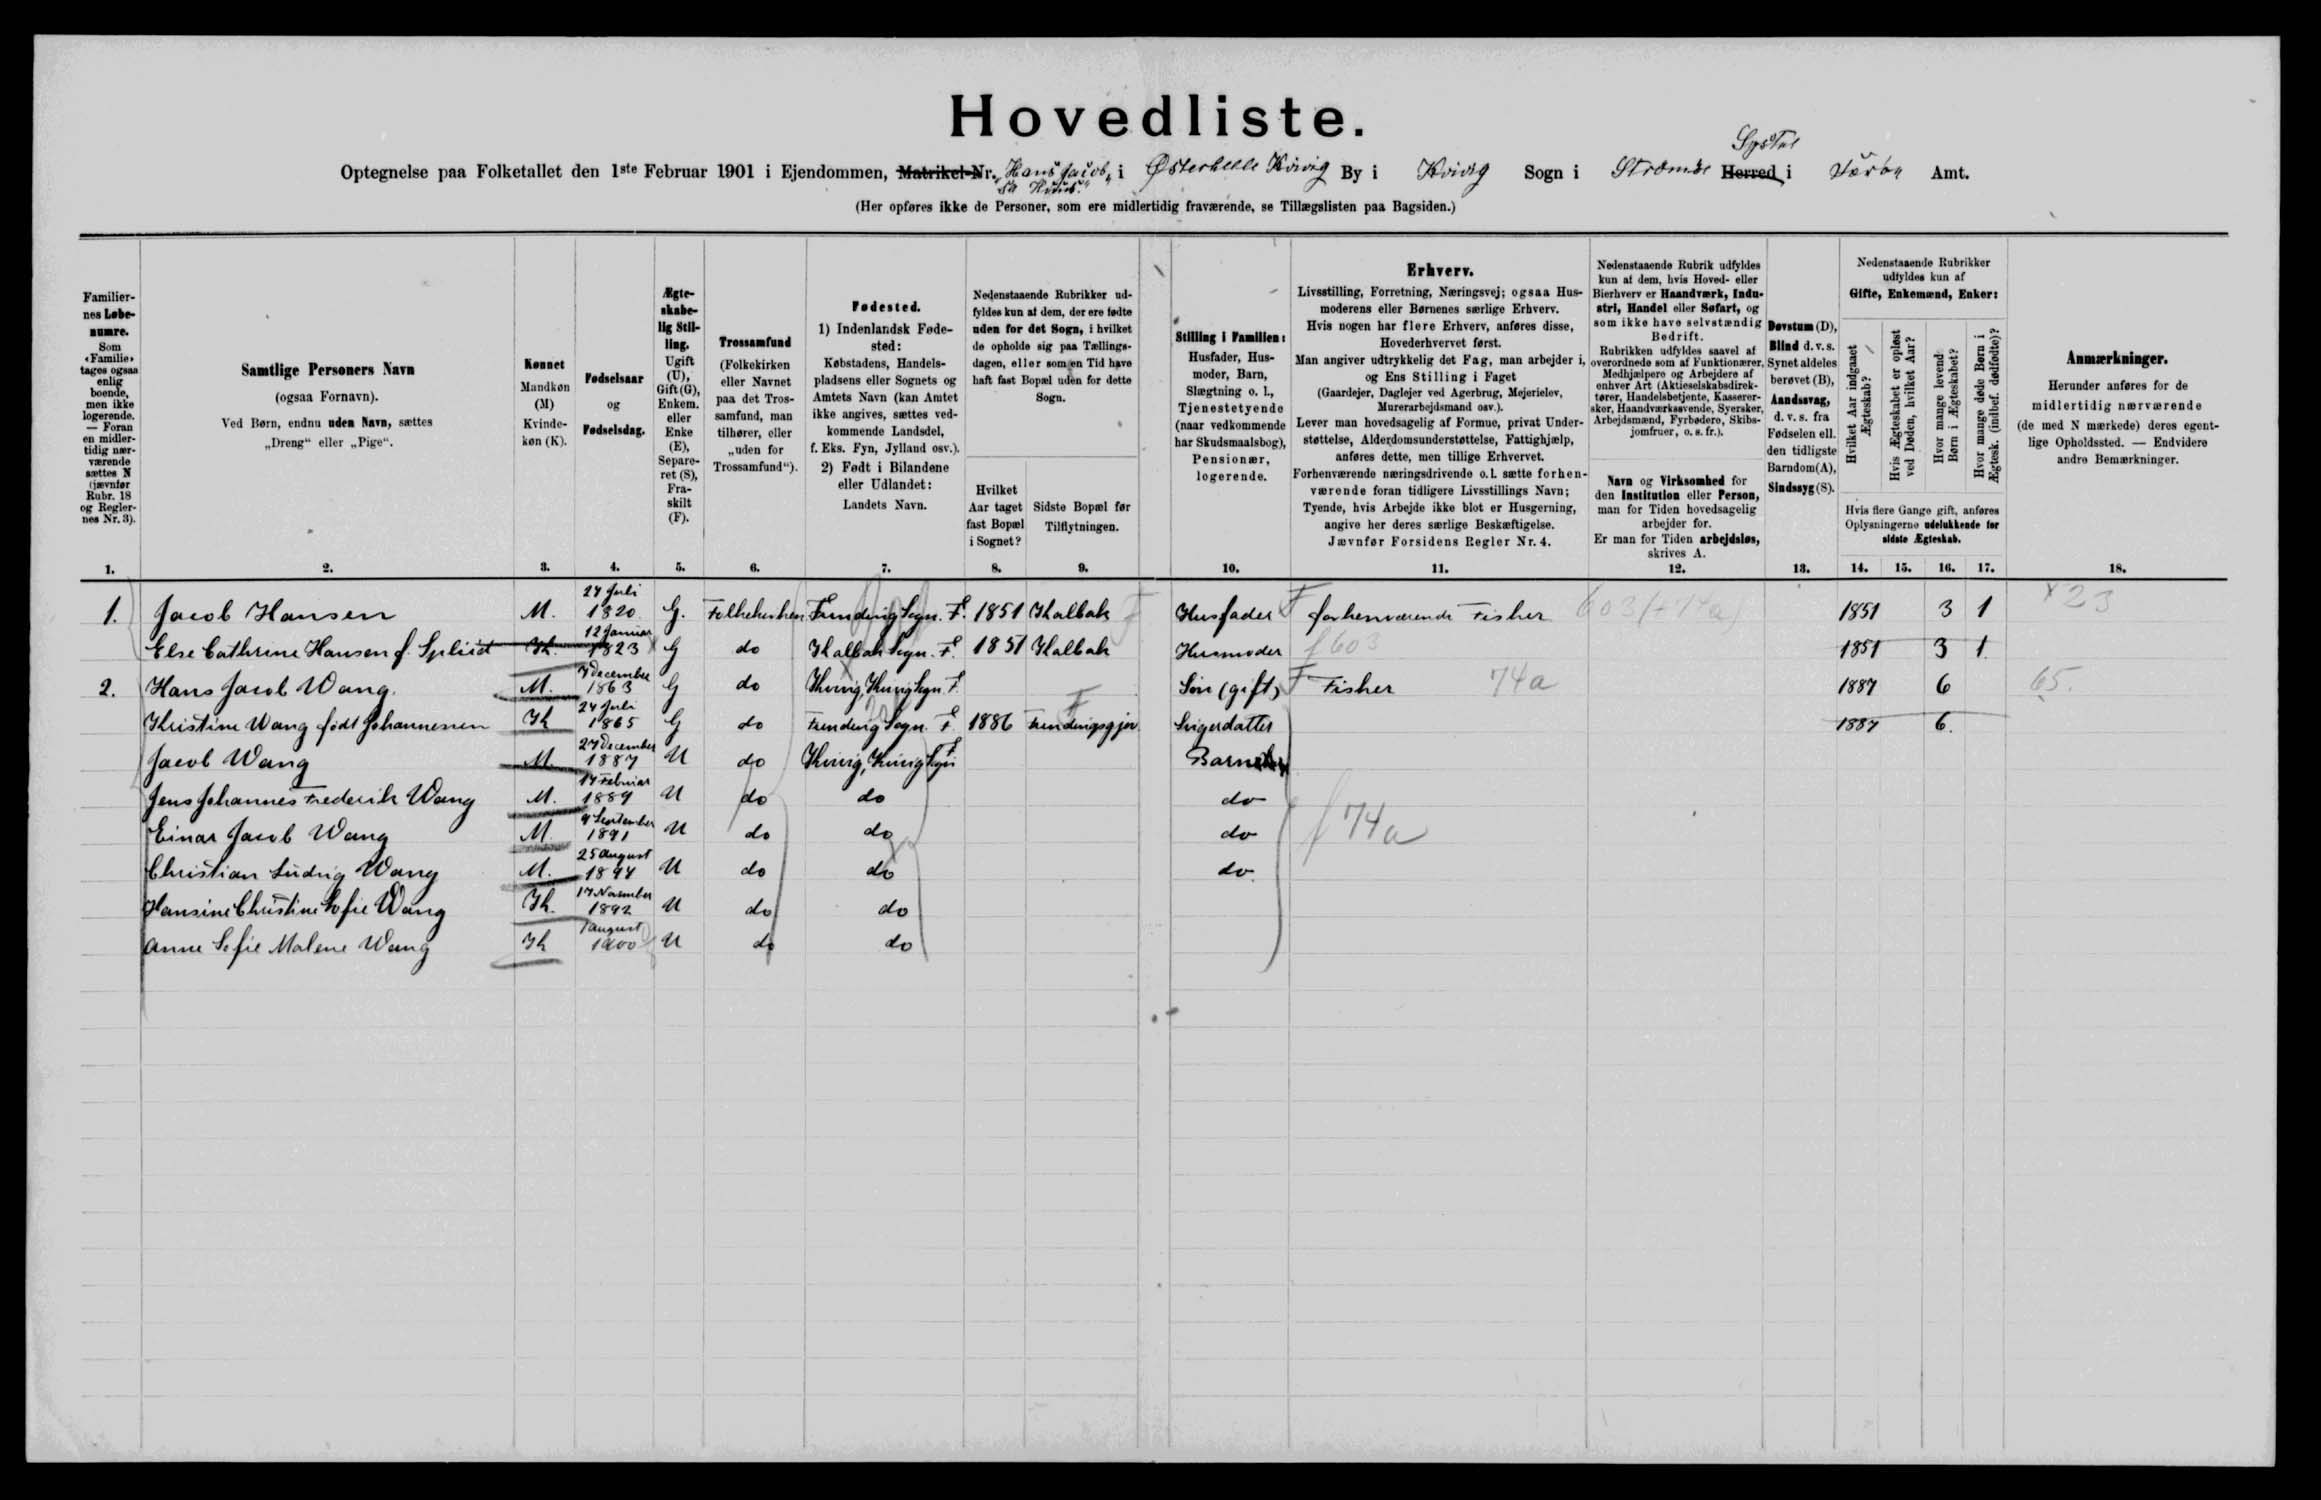 Hovedliste.
Syssel
Optegnelse paa Folketallet den 1ste Februar 1901 i Ejendommen, Matrikel-Nr. „Hans Jacob" i Kvivig By i Kvivig Sogn i Strømø Herred i Færøe Amt.
(Her opføres ikke de Personer, som ere midlertidig fraværende, se Tillægslisten paa Bagsiden.)
Familiernes Løbenumre.
Som «Familie» tages ogsaa enlig boende, men ikke logerende. — Foran en midlertidig nærværende sættes N (jævnfør Rubr. 18 og Reglernes Nr. 3).
1.
Samtlige Personers Navn
(ogsaa Fornavn).
Ved Børn, endnu uden Navn, sættes
„Dreng" eller „Pige".
2.
Kønnet
Mandkøn (M)
Kvindekøn (K).
3.
Fødselsaar
og
Fødselsdag.
4.
Ægteskabelig Stilling.
Ugift (U), Gift (G), Enkem. eller Enke (E), Separeret (S), Fraskilt (F).
5.
Trossamfund
(Folkekirken eller Navnet paa det Trossamfund, man tilhører, eller „uden for Trossamfund").
6.
Fødested.
1) Indenlandsk Fødested:
Købstadens, Handelspladsens eller Sognets og Amtets Navn (kan Amtet ikke angives, sættes vedkommende Landsdel, f. Eks. Fyn, Jylland osv.).
2) Født i Bilandene eller Udlandet:
Landets Navn.
7.
Nedenstaaende Rubrikker udfyldes kun af dem, der ere fødte uden for det Sogn, i hvilket de opholde sig paa Tællingsdagen, eller som en Tid have haft fast Bopæl uden for dette Sogn.
Hvilket Aar taget fast Bopæl i Sognet?
8.
Sidste Bopæl før Tilflytningen.
9.
Stilling i Familien:
Husfader, Husmoder, Barn, Slægtning o. l., Tjenestetyende (naar vedkommende har Skudsmaalsbog), Pensionær, logerende.
10.
Erhverv.
Livsstilling, Forretning, Næringsvej; ogsaa Husmoderens eller Børnenes særlige Erhverv.
Hvis nogen har flere Erhverv, anføres disse, Hovederhvervet først.
Man angiver udtrykkelig det Fag, man arbejder i, og Ens Stilling i Faget
(Gaardejer, Daglejer ved Agerbrug, Mejerielev, Murerarbejdsmand osv.).
Lever man hovedsagelig af Formue, privat Understøttelse, Alderdomsunderstøttelse, Fattighjælp, anføres dette, men tillige Erhvervet.
Forhenværende næringsdrivende o. l. sætte forhenværende foran tidligere Livsstillings Navn;
Tyende, hvis Arbejde ikke blot er Husgerning, angive her deres særlige Beskæftigelse.
Jævnfør Forsidens Regler Nr. 4.
11.
Nedenstaaende Rubrik udfyldes kun af dem, hvis Hoved- eller Bierhverv er Haandværk, Industri, Handel eller Søfart, og som ikke have selvstændig Bedrift.
Rubrikken udfyldes saavel af overordnede som af Funktionærer, Medhjælpere og Arbejdere af enhver Art (Aktieselskabsdirektører, Handelsbetjente, Kasserersker, Haandværkssvende, Syersker, Arbejdsmænd, Fyrbødere, Skibsjomfruer, o. s. fr.).
Navn og Virksomhed for den Institution eller Person, man for Tiden hovedsagelig arbejder for.
Er man for Tiden arbejdsløs, skrives A.
12.
Døvstum (D), Blind d. v. s. Synet aldeles berøvet (B), Aandssvag, d. v. s. fra Fødselen ell. den tidligste Barndom (A), Sindssyg (S).
13.
Nedenstaaende Rubrikker udfyldes kun af
Gifte, Enkemænd, Enker:
Hvilket Aar indgaaet Ægteskab?
Hvis Ægteskabet er opløst ved Døden, hvilket Aar?
Hvor mange levend. Børn i Ægteskabet?
Hvor mange døde Børn i Ægtesk. (indbef. dødfødte)?
Hvis flere Gange gift, anføres Oplysningerne udelukkende for sidste Ægteskab.
14. 15. 16. 17.
Anmærkninger.
Herunder anføres for de midlertidig nærværende (de med N mærkede) deres egentlige Opholdssted. — Endvidere andre Bemærkninger.
18.
1. Jacob Hansen M. 24 Juli 1820 G. Folkekirken Funding Sogn. F. 1851 Kalbak Husfader F forhenværende Fisker 603 (+74a) 1851 3 1 x23
Else Cathrine Hansen f. Splid K. 12 Januar 1823 G do Kalbak Sogn. F. 1851 Kalbak Husmoder f 603 1851 3 1
2. Hans Jacob Wang. M. 7 December 1863 G do Kvivig, Kvivig Sogn F. Søn (gift) F Fisker 74a 1887 6 65.
Kristine Wang født Johannesen K 24 Juli 1865 G do Funding Sogn. F. 1886 Fundingsgjov Svigerdatter 1887 6.
Jacob Wang M. 27 December 1887 U do Kvivig, Kvivig Sogn F Barn
Jens Johannes Frederik Wang M. 17 Februar 1889 U do do do
Einar Jacob Wang M. 9 September 1891 U do do do f 74a
Christian Ludvig Wang M. 25 August 1894 U do do do
Hansine Christine Sofie Wang K. 17 November 1892 U do do
Anne Sofie Malene Wang K 1 August 1900 U do do